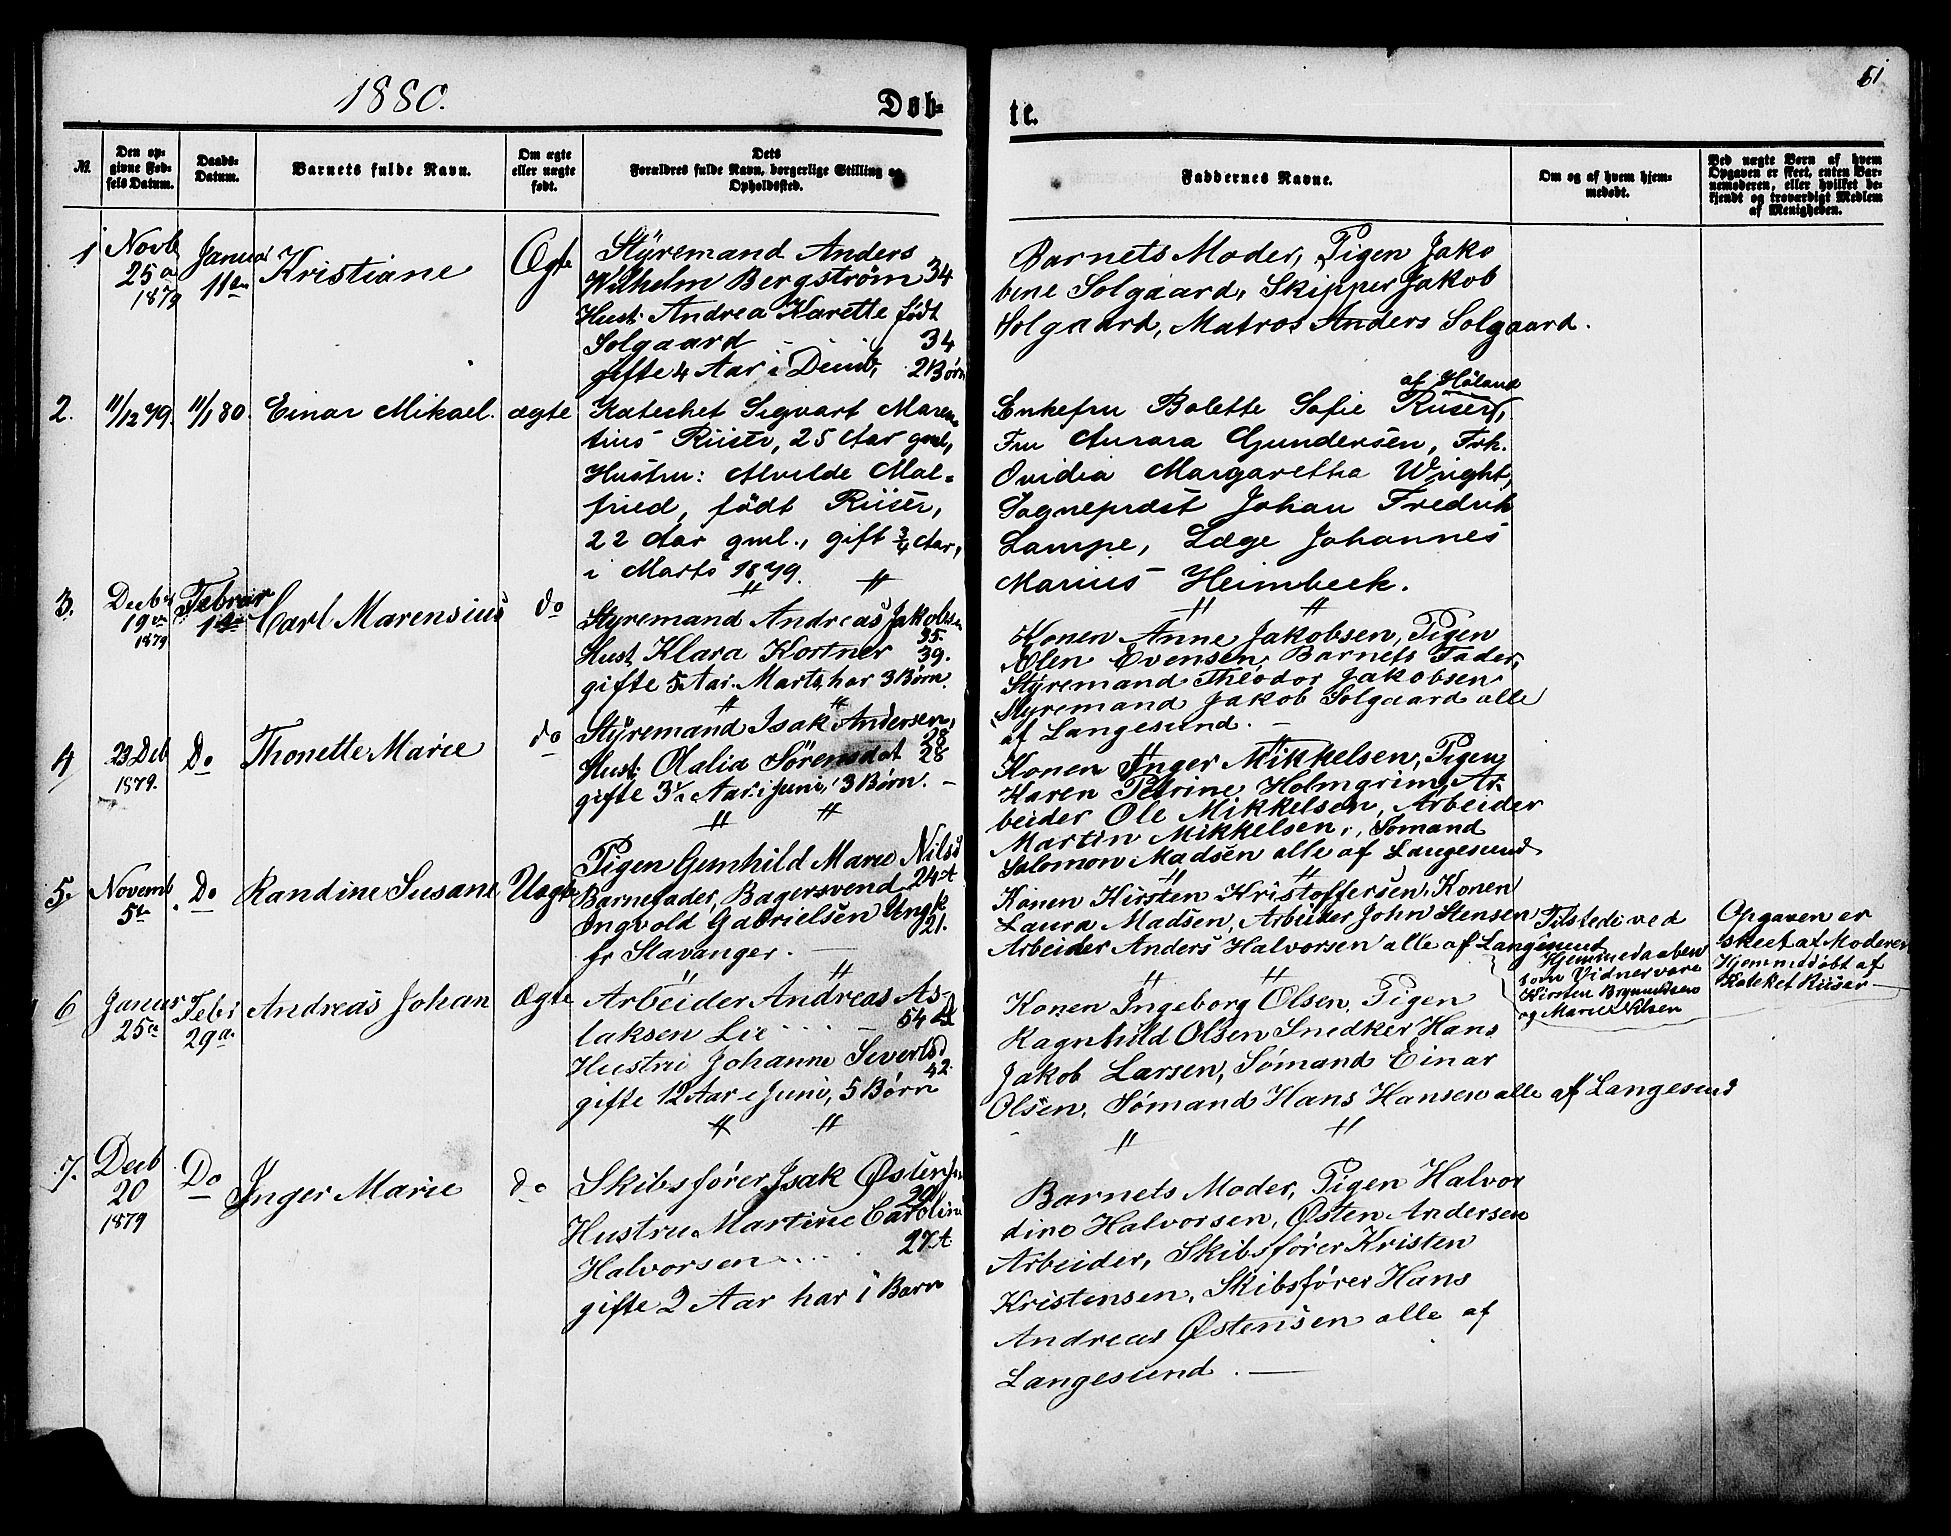 1880.
Døb-
te.
51
№
Den op-
givne Fød-
sels Datum.
Daabs-
Datum.
Barnets fulde Navn.
Om ægte
eller uægte
født.
Dets
Forældres fulde Navn, borgerlige Stilling og
Opholdssted.
Faddernes Navne.
Om og af hvem hjem-
medøbt.
Ved uægte Børn af hvem
Opgaven er skeet, enten Bar-
nemoderen, eller hvilket be-
kjendt og troværdigt Medlem
af Menigheden.
1
Novb
25a
1879
Januar
11te
Kristiane
Ægte
Styremand Anders
Wilhelm Bergström 34
Hust: Andrea Karette født
Solgaard - 34
gifte 4 Aar i Decmb, 2 Børn
Barnets Moder, Pigen Jako
bine Solgaard, Skipper Jakob
Solgaard, Matros Anders Solgaard.
2.
11/12 79.
11/1 80.
Einar Mikael.
ægte
Katechet Sigvart Maren-
tius Riiser, 25 Aar gml,
Hustru: Alvilde Mal-
fried, født Riiser,
22 Aar gml., gift 3/4 Aar,
i Marts 1879.
af Høland
Enkefru Bolette Sofie Riiser,
Fru Aurora Gundersen, Frk.
Ovidia Margaretha Wright,
Sogneprest Johan Fredrik
Lampe, Læge Johannes
Marius Heimbeck.
3.
Decbr
19de
1879
Februar
1ste
Carl Marensius
do
Styremand Andreas Jakobsen
35.
Hust, Klara Kortner 39.
gifte 5 Aar. Marts, har 3 Børn.
Konen Anne Jakobsen, Pigen
Elen Evensen, Barnets Fader,
Styremand Theodor Jakobsen
Styremand Jakob Solgaard alle
af Langesund. -
4
23 Deb
1879.
Do
Thonette Marie
do
Styremand Isak Andersen,
28
Hust, Olalia Sörensdat 28
gifte 3½ Aar i Juni, 3 Børn. -
Konen Inger Mikkelsen, Pigen
Karen Petrine Holmgrim, Ar-
beider Ole Mikkelsen, Arbeider
Martin Mikkelsen, Sömand
Salomon Madsen alle af Langesund
5.
Novemb
5te
Do
Randine Susane
Uægte
Pigen Gunhild Marie Nilsd
24 A
Barnefader, Bagersvend
Ingvold Gabrielsen Ungk
21.
fr Stavanger. -
Konen Kirsten Kristoffersen, Konen
Laura Madsen, Arbeider John Stensen
Arbeider Anders Halvorsen alle af Langesund
Tilstede ved
Hjemmedaaben
som Vidner vare
Kirsten Brynnildsen
og Marie Nilsen
Opgaven er
skeet af Moderen
Hjemmedøbt af
Kateket Riiser -
6
Januar
25de
Febr
29de
Andreas Johan
Ægte
Arbeider Andreas As-
laksen Lie - 54 A
Hustru Johanne Sivertsd
42
gifte 12 Aar i Juni, 5 Børn
Konen Ingeborg Olsen, Pigen
Ragnhild Olsen Snedker Hans
Jakob Larsen, Sömand Einar
Olsen, Sömand Hans Hansen alle af Langesund
7.
Decb
20
1879
Do
Inger Marie
do
Skibsfører Isak Østensen
29
Hustru Martine Caroline
Halvorsen . . . 27 A
gifte 2 Aar har 1 Barn
Barnets Moder, Pigen Halvor
dine Halvorsen, Østen Andersen
Arbeider, Skibsfører Kristen
Kristensen, Skibsfører Hans
Andreas Østensen alle af
Langesund. -